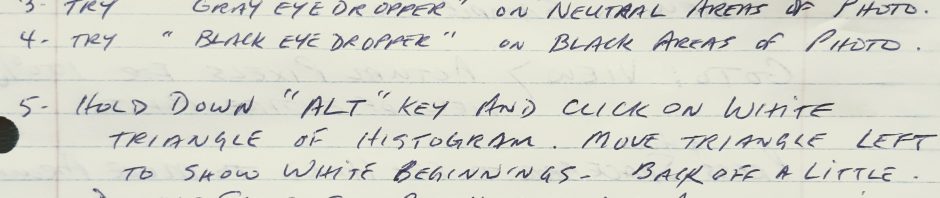 3- TRY "GRAY EYEDROPPER" ON NEUTRAL AREAS OF PHOTO.
4- TRY "BLACK EYEDROPPER" ON BLACK AREAS OF PHOTO.
5- HOLD DOWN "ALT" KEY AND CLICK ON WHITE
TRIANGLE OF HISTOGRAM. MOVE TRIANGLE LEFT
TO SHOW WHITE BEGINNINGS- BACK OFF A LITTLE.